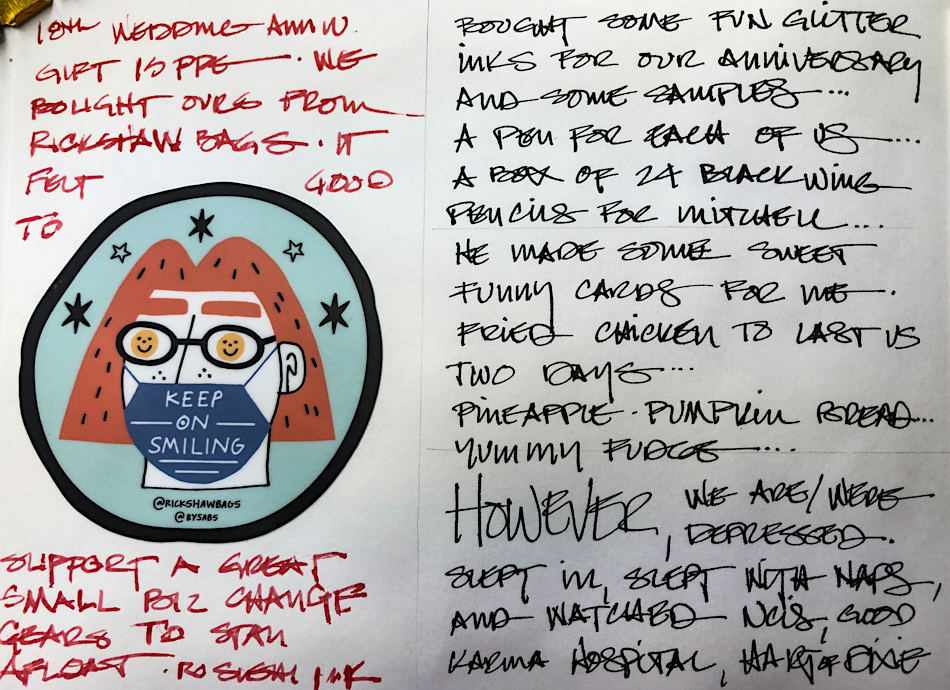 18th WEDDING ANNIV.
GIFT IS PPE. WE
BOUGHT OURS FROM
RICKSHAW BAGS. IT
FELT GOOD
TO
KEEP
ON
SMILING
@RICKSHAWBAGS
@BYSABS
SUPPORT A GREAT
SMALL BIZ CHANGE
GEARS TO STAY
AFLOAT. INK
BOUGHT SOME FUN GLITTER
INKS FOR OUR ANNIVERSARY
AND SOME SAMPLES...
A PEN FOR EACH OF US....
A BOX OF 24 BLACKWING
PENCILS FOR MITCHELL....
HE MADE SOME SWEET
FUNNY CARDS FOR ME.
FRIED CHICKEN TO LAST US
TWO DAYS....
PINEAPPLE. PUMPKIN BREAD...
YUMMY FUDGE....
HOWEVER, WE ARE/WERE
DEPRESSED.
SLEPT IN, SLEPT WITH NAPS,
AND WATCHED NCIS, GOOD
KARMA HOSPITAL, HART OF DIXIE